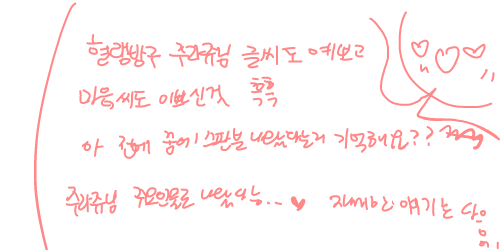 혈랭방구 주라쥬님 글씨도 예쁘고
마음씨도 이쁘신것 흑흑
아 전에 꿈에 스판블 나왔다는거 기억해요??
주라쥬님 주요인물로 나왔다능... ♥ 자세한 얘기는 다음에